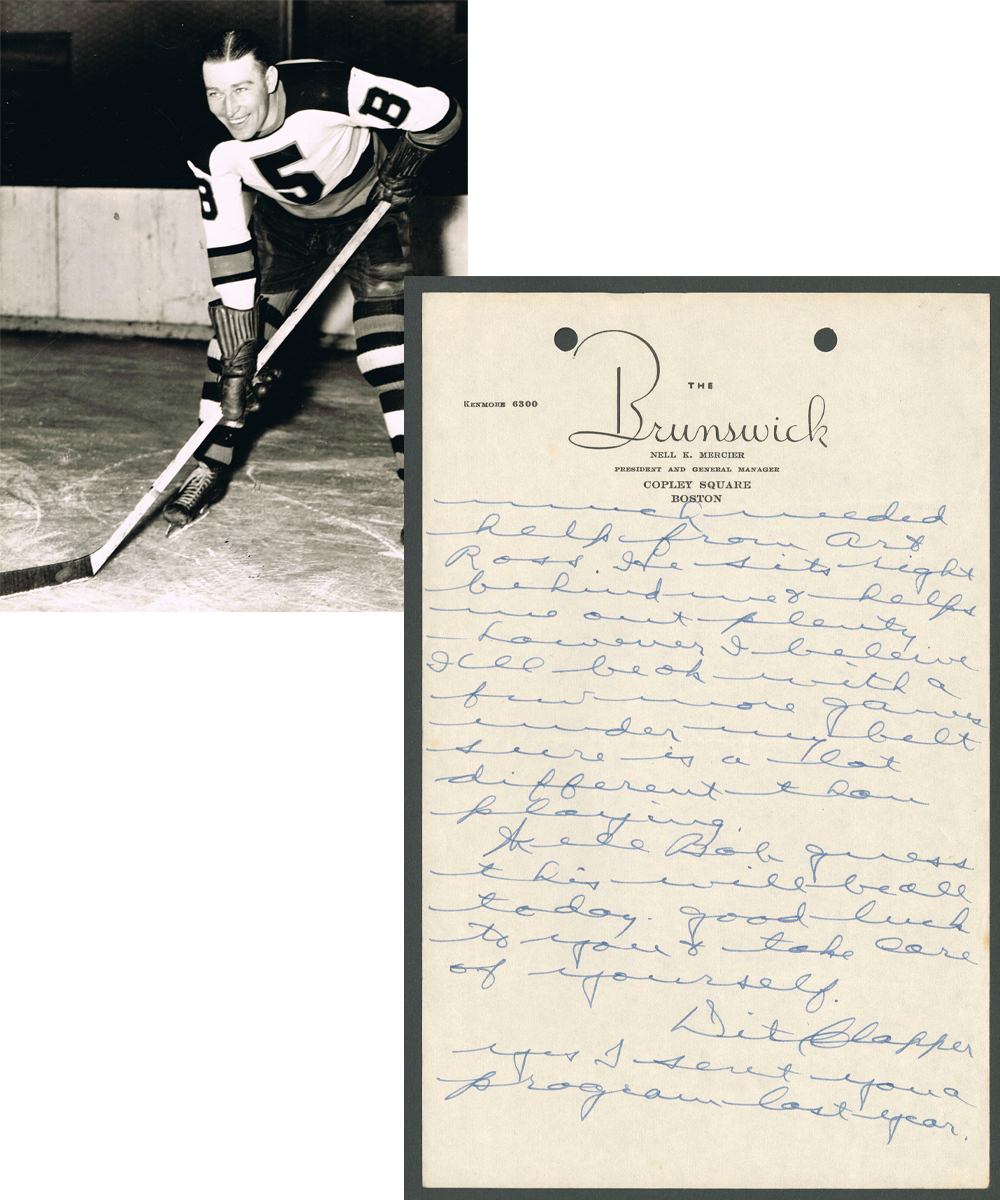 B
5
B
KENMORE 6300
THE
Brunswick
NELL K. MERCIER
PRESIDENT AND GENERAL MANAGER
COPLEY SQUARE
BOSTON
much needed
help from Art
Ross. He sits right
behind me & helps
me out plenty
– however I beleive
I'll be ok with a
few more games
under my belt
sure is a lot
different than
playing.
Well Bob guess
this will be all
today. good luck
to you & take care
of yourself.
Dit Clapper
yes I sent you a
program last year.